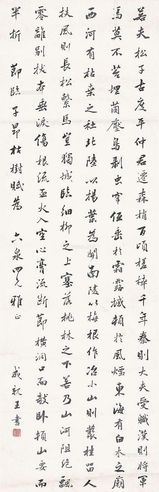 若夫松子古度平仲君遷森梢百頃槎枿千年秦則大夫受職漢則將軍
焉莫不苔埋菌壓鳥剝蟲穿低垂於霜露撼頓於風煙東海有白木之廟
西河有枯桑之社北陸以楊葉為關南陵以梅根作冶小山則叢桂留人
扶風則長松繫馬豈獨城臨細柳之上塞落桃林之下若乃山河阻絕飄
離別拔本垂淚傷根流血火入空心膏流斷節橫洞口而欹臥頓山要而
半折 節臨子昂枯樹賦為
六泉四兄雅正
成親王書